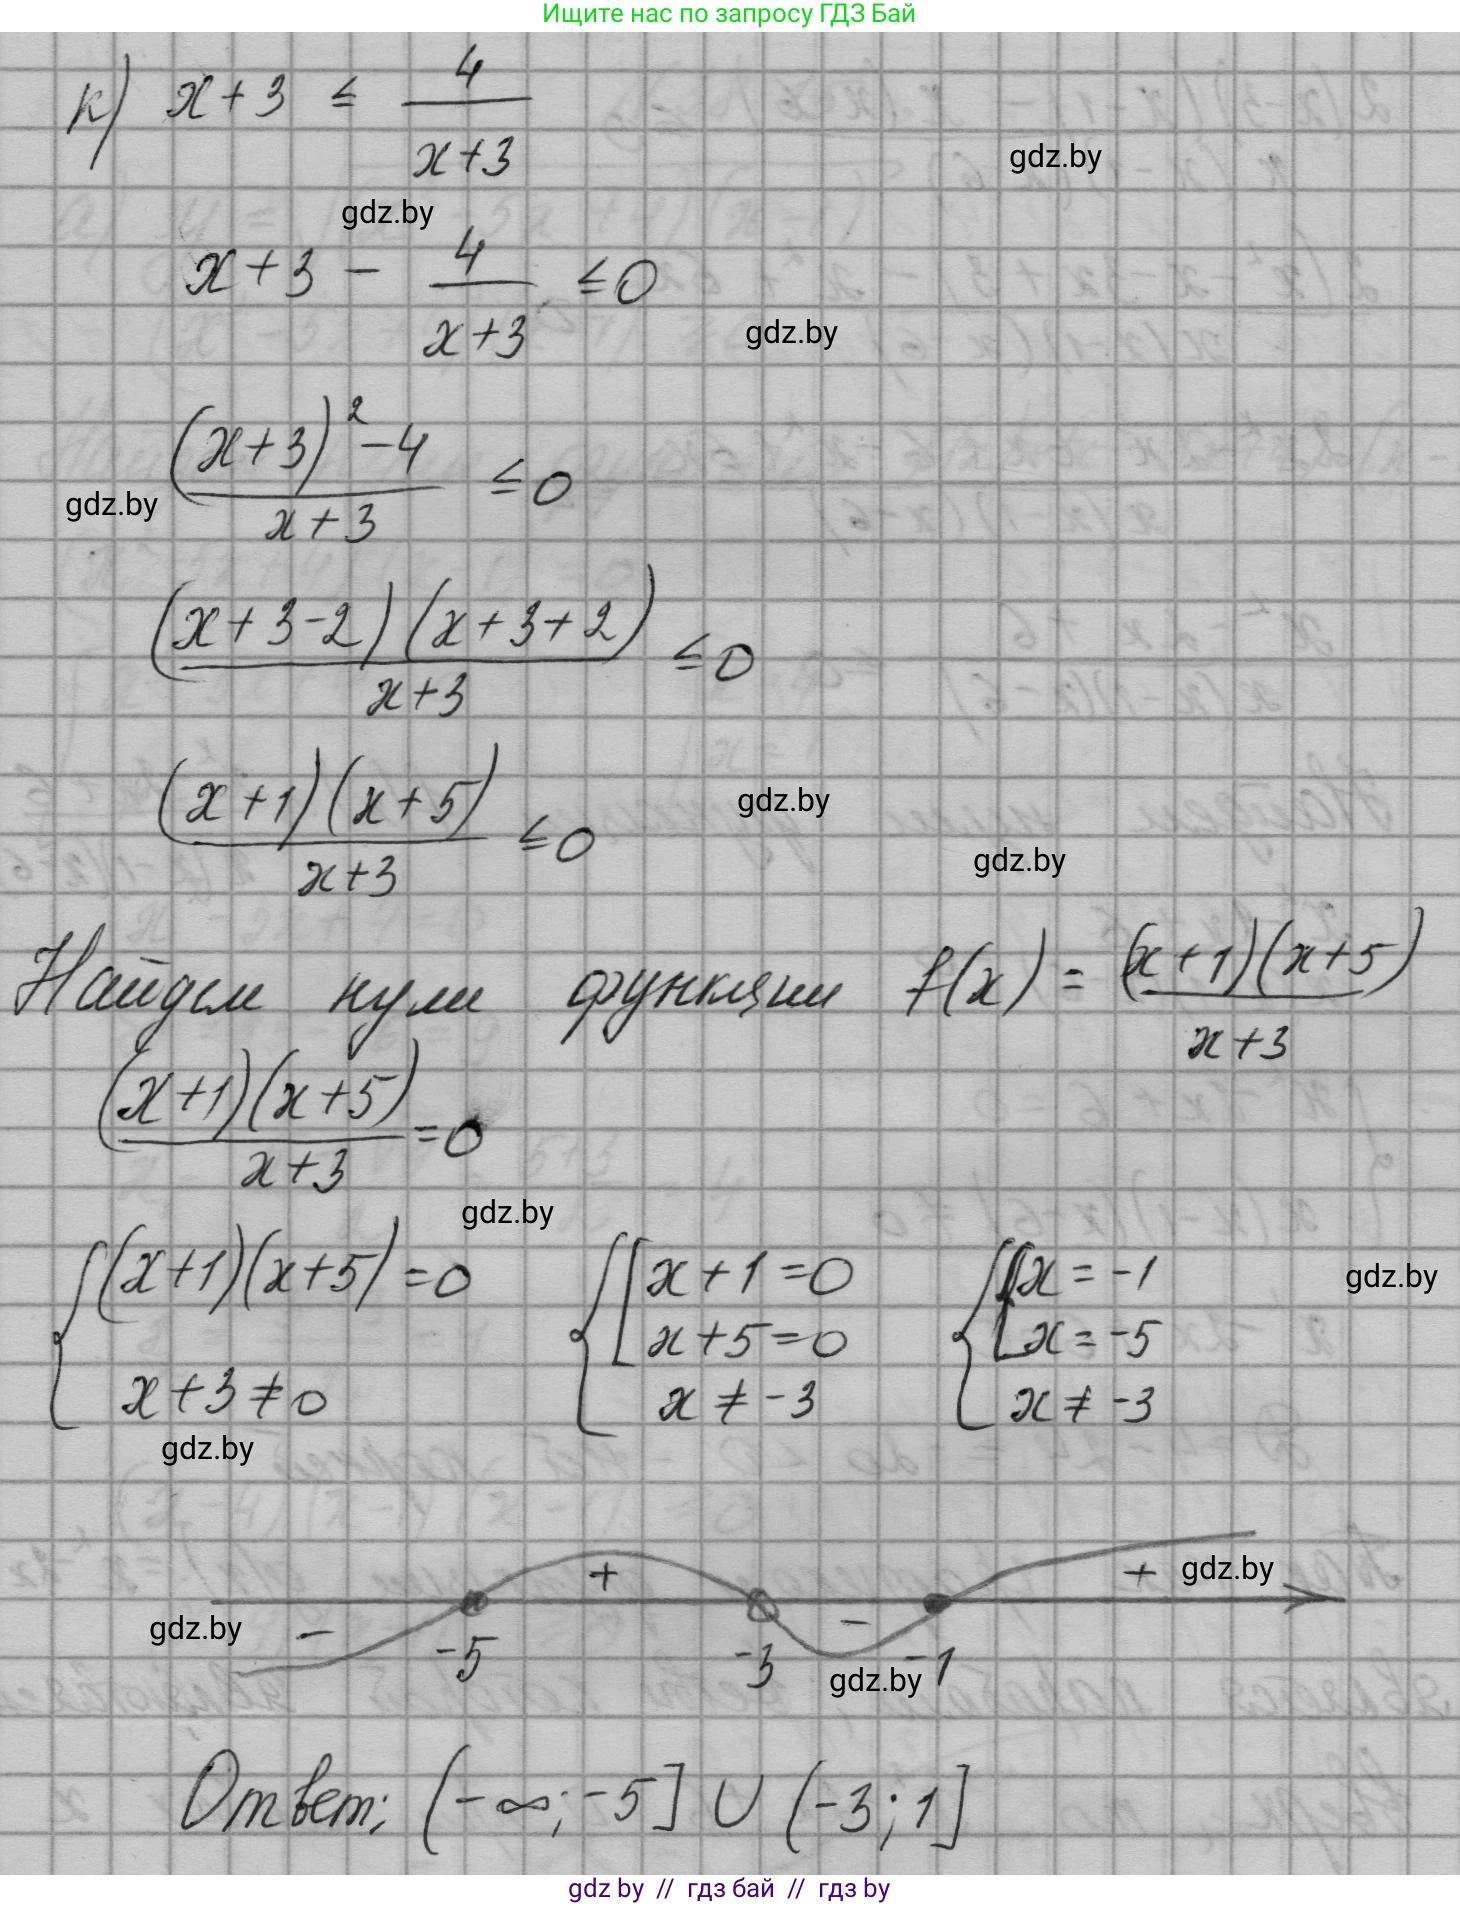 Ищите нас по запросу ГДЗ Бай
к) x+3 ≤ 4/(x+3)
gdz.by
gdz.by
x+3 - 4/(x+3) ≤0
gdz.by
((x+3)²-4)/(x+3) ≤0
gdz.by
((x+3-2)(x+3+2))/(x+3) ≤0
((x+1)(x+5))/(x+3) ≤0
gdz.by
gdz.by
Найдем нули функции f(x) = ((x+1)(x+5))/(x+3)
((x+1)(x+5))/(x+3) =0
gdz.by
{(x+1)(x+5)=0 {[x+1=0 {[x=-1
gdz.by
x+5=0 x=-5
x+3≠0 x≠-3 x≠-3
gdz.by
+ + gdz.by
gdz.by - -
-5 -3 -1
gdz.by
Ответ: (-∞;-5] ∪ (-3;1]
gdz by // гдз бай // гдз by